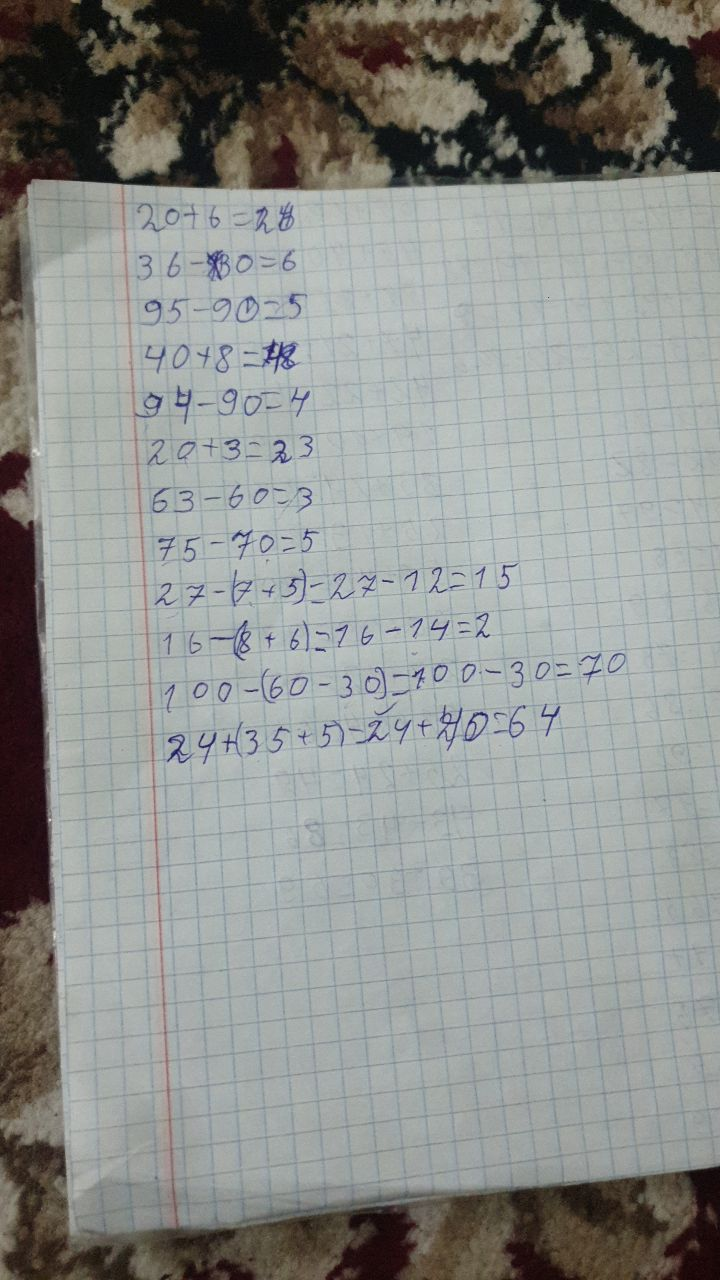 20+6=26
36-30=6
95-90=5
40+8=48
94-90=4
20+3=23
63-60=3
75-70=5
27-(7+5)=27-12=15
16-(8+6)=16-14=2
100-(60-30)=100-30=70
24+(35+5)=24+40=64